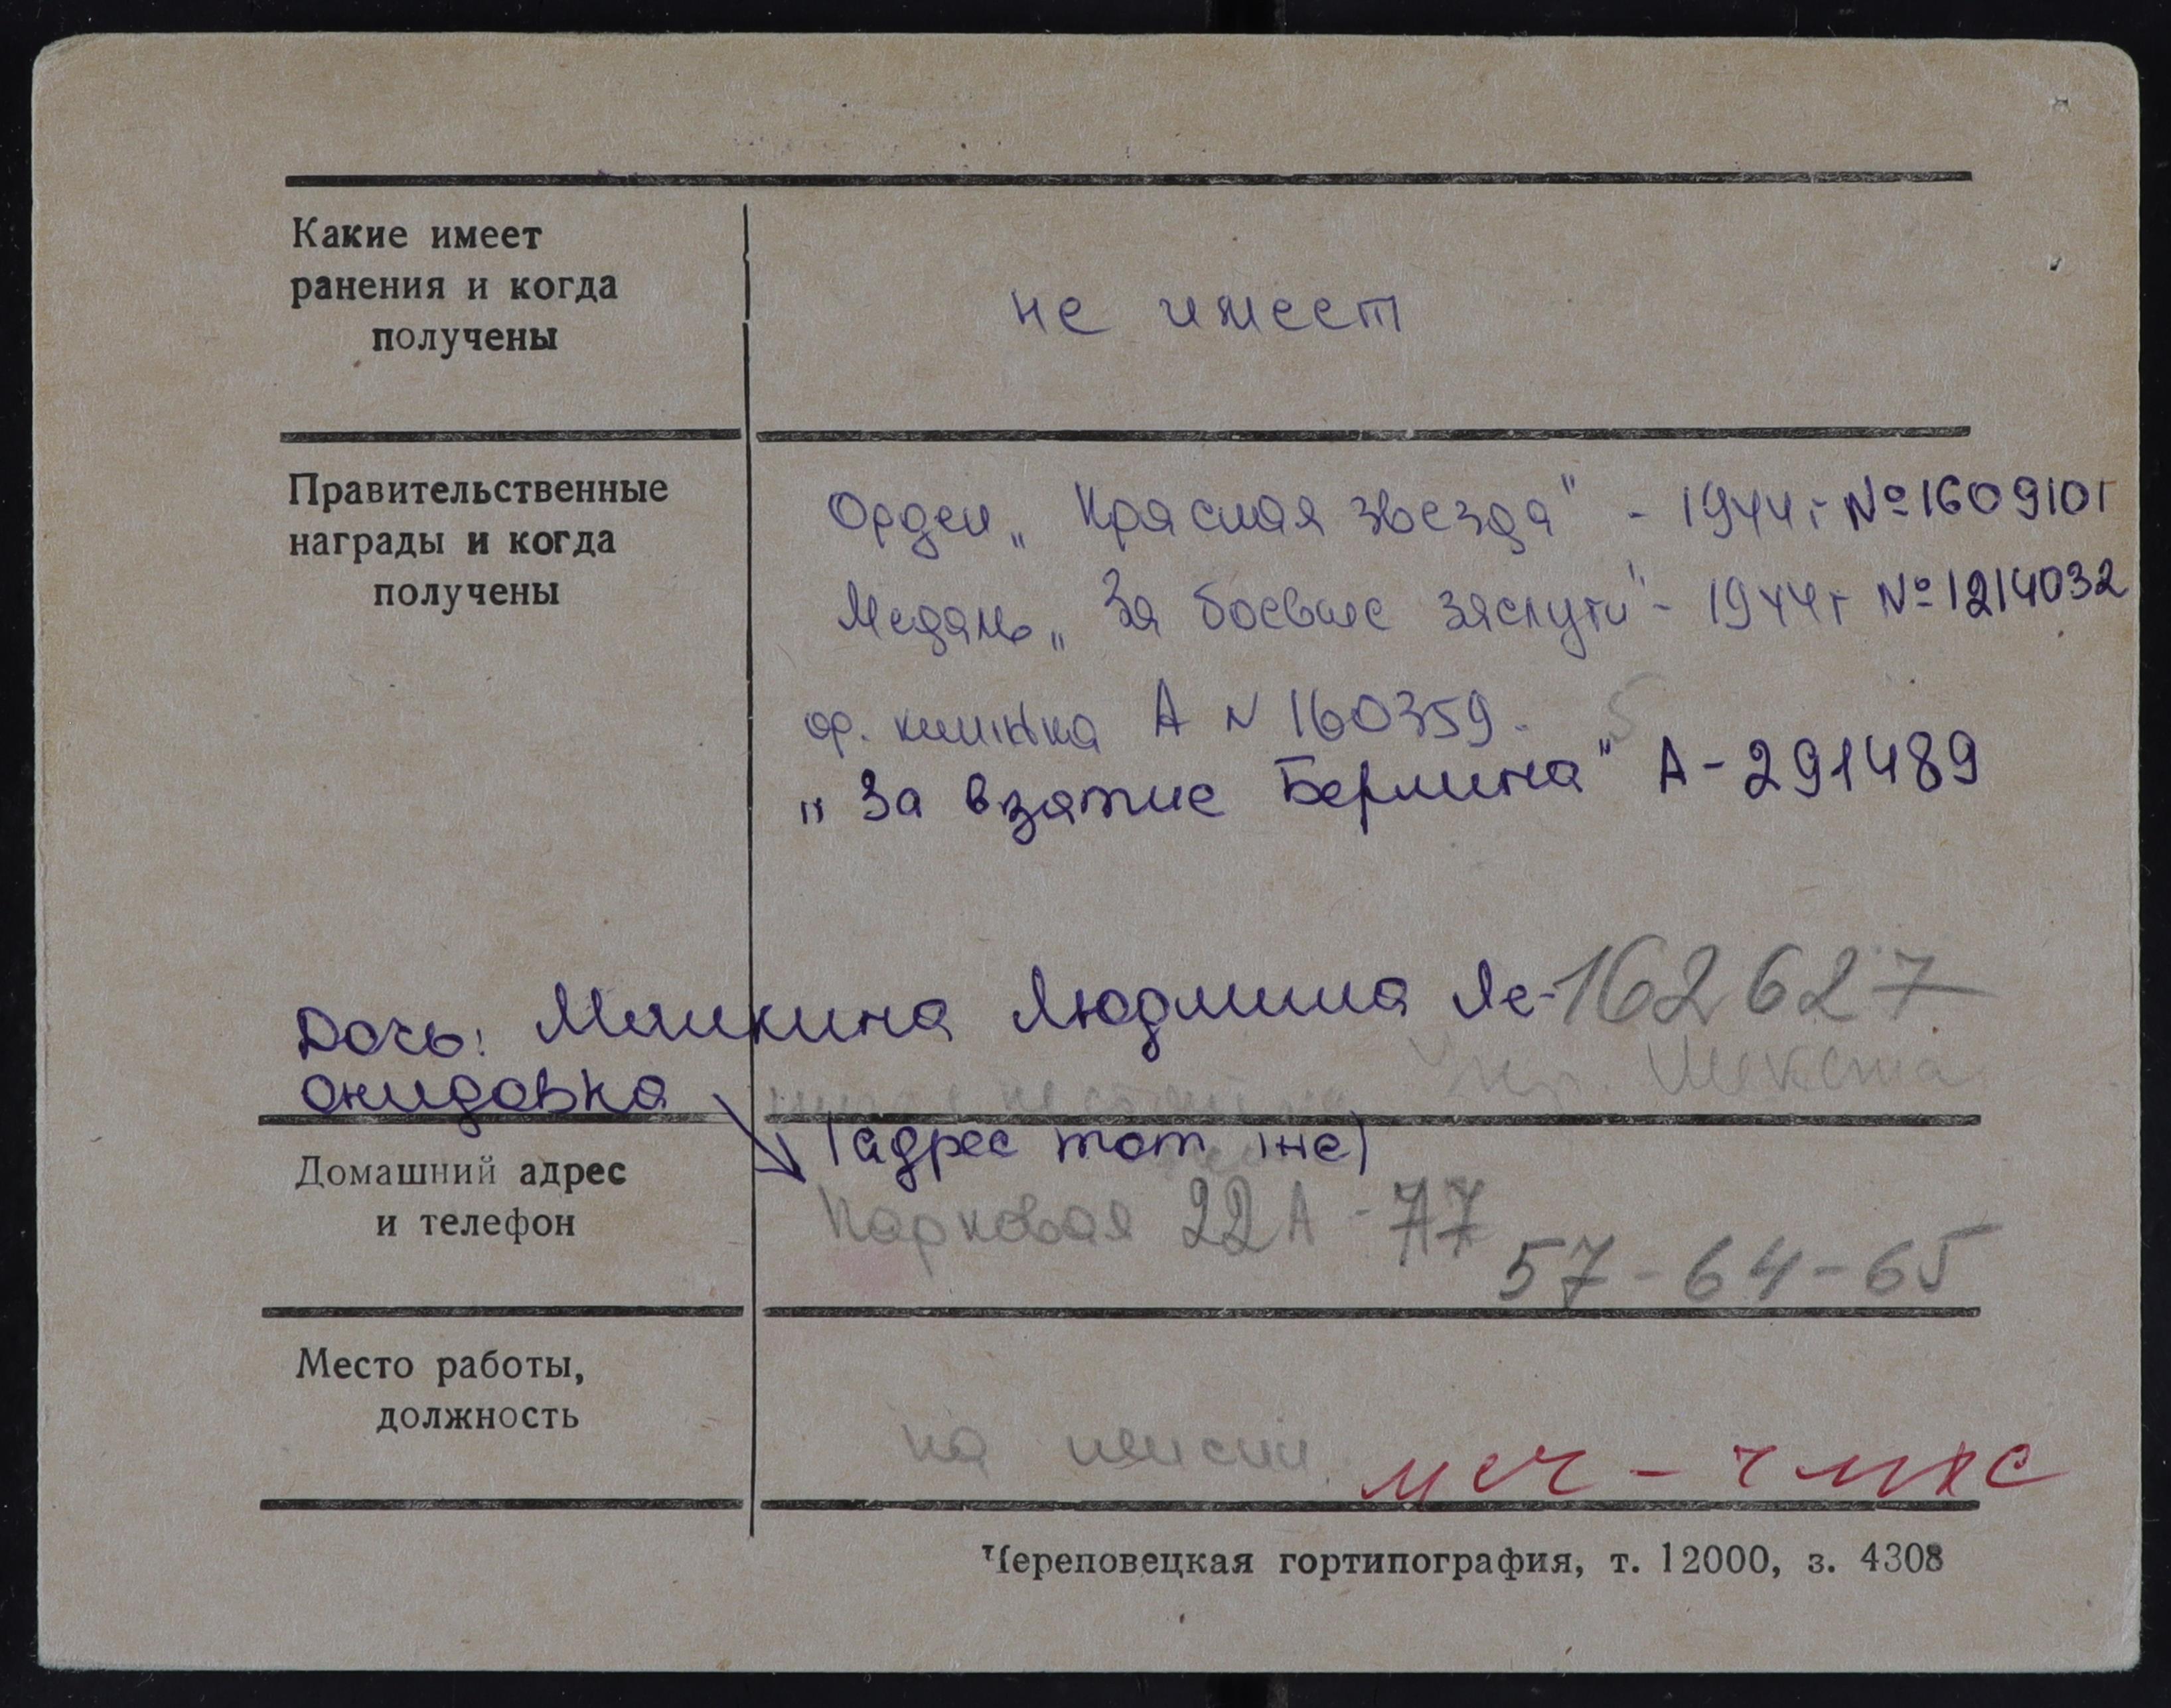 Какие имеет
ранения и когда
получены
не имеет
Правительственные
награды и когда
получены
Орден „Красная звезда" - 1944 г № 1609101
Медаль „За боевые заслуги" - 1944 г № 1214032
ор. книжка А № 160359.
„За взятие Берлина" А-291489
162627
Дочь: Мямкина Людмила Ле-
онидовна
(адрес тот же)
Домашний адрес
и телефон
Парковая 22А - 77
57-64-65
Место работы,
должность
на пенсии.
Череповецкая гортипография, т. 12000, з. 4308